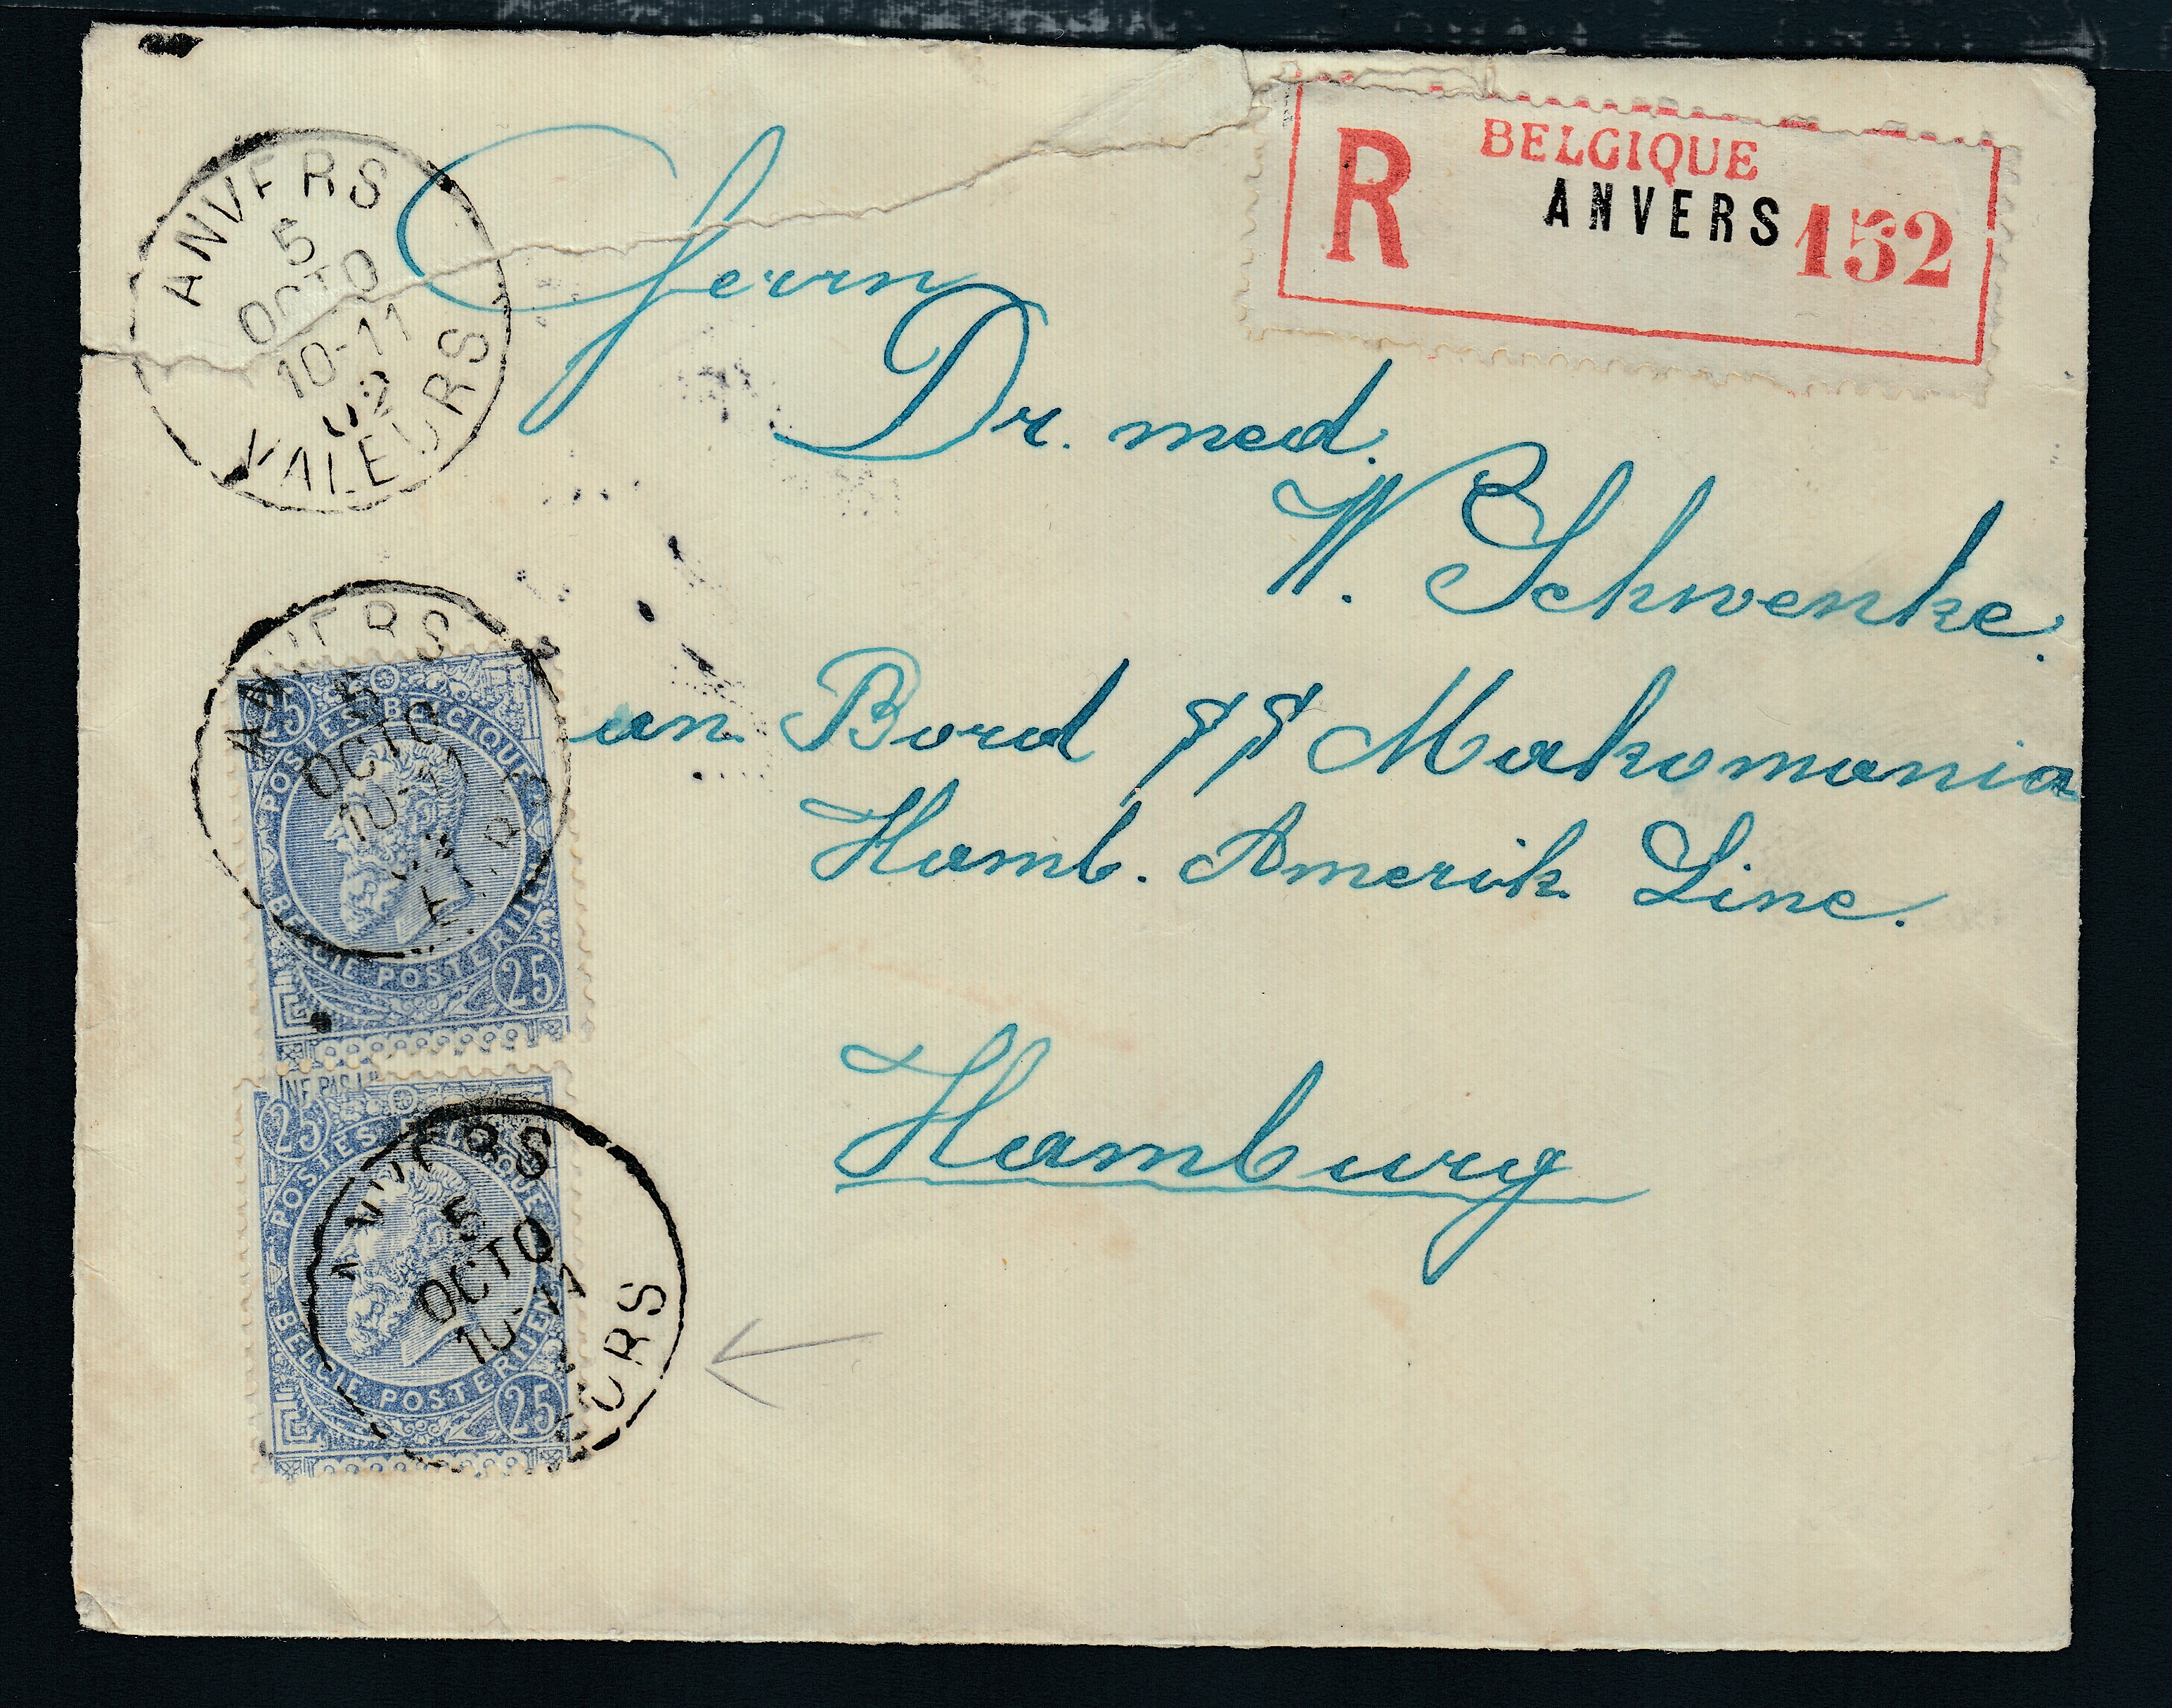 BELGIQUE
R ANVERS 152
ANVERS
5
OCTO
10-11
02
VALEURS
Herrn
Dr. med.
W. Schwenke.
an Bord SS Makomania
Hamb. Amerik. Line.
Hamburg
ANVERS
5
OCTO
10-11
25
POSTES BELGIQUE
BELGIE POSTERIJEN
25
NE PAS
25
POSTES BELGIQUE
BELGIE POSTERIJEN
25
ANVERS
5
OCTO
10-11